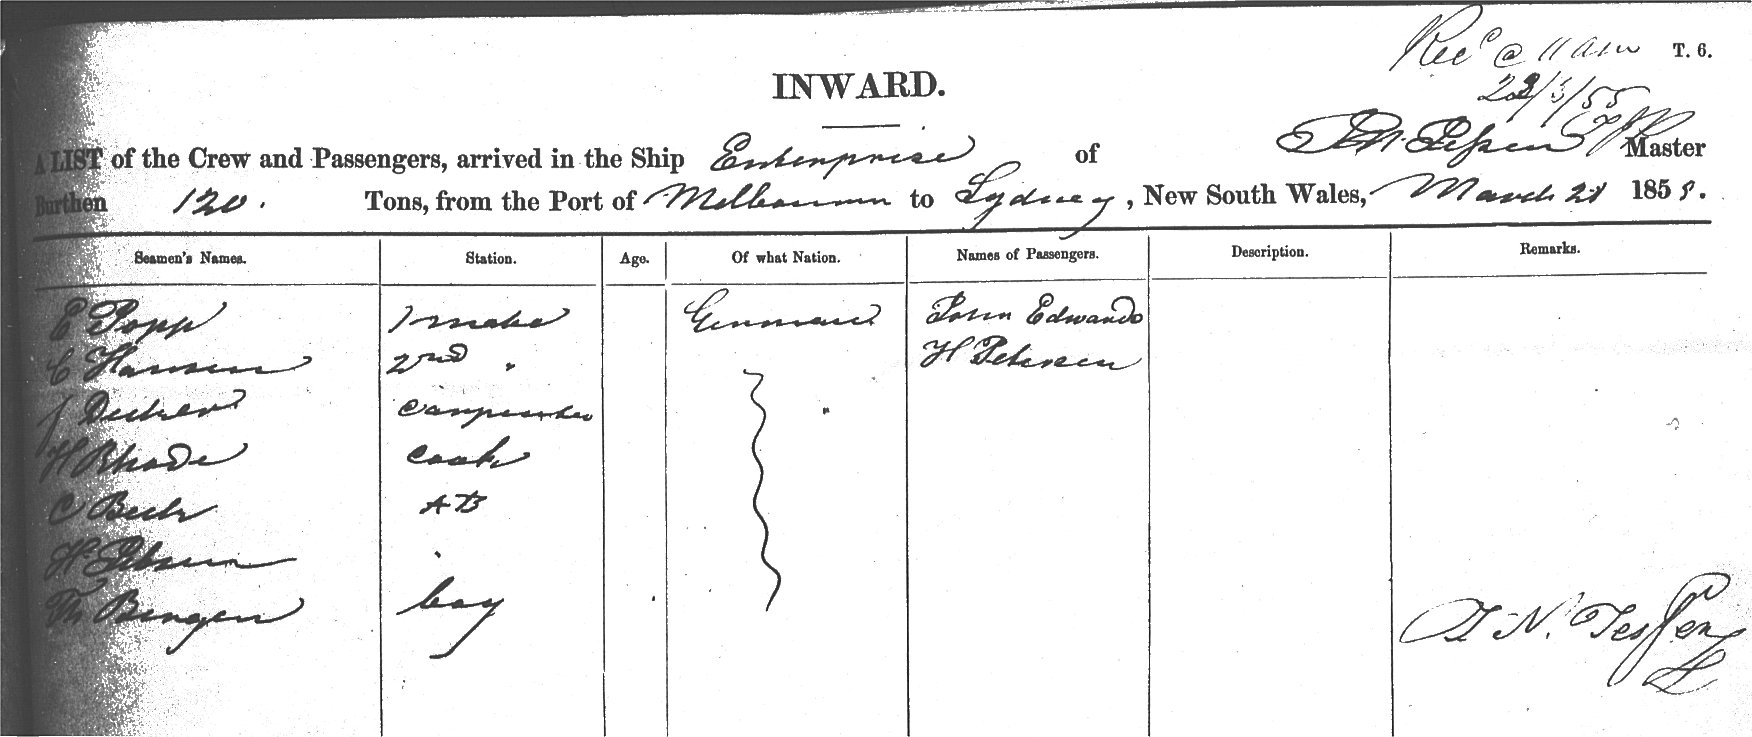 Rec^d @ 11 am T. 6.
INWARD.
22/3/55
A LIST of the Crew and Passengers, arrived in the Ship Enterprise of Master
Burthen 120. Tons, from the Port of Melbourne to Sydney, New South Wales, March 21 185
Seamen's Names. Station. Age. Of what Nation. Names of Passengers. Description. Remarks.
E Popp 1 mate German John Edwards
C Hansen 2nd " H Petersen
J Decker Carpenter "
H Rhode Cook
C Beck AB
H. Petersen "
Th Bengen boy
T N. Tessen